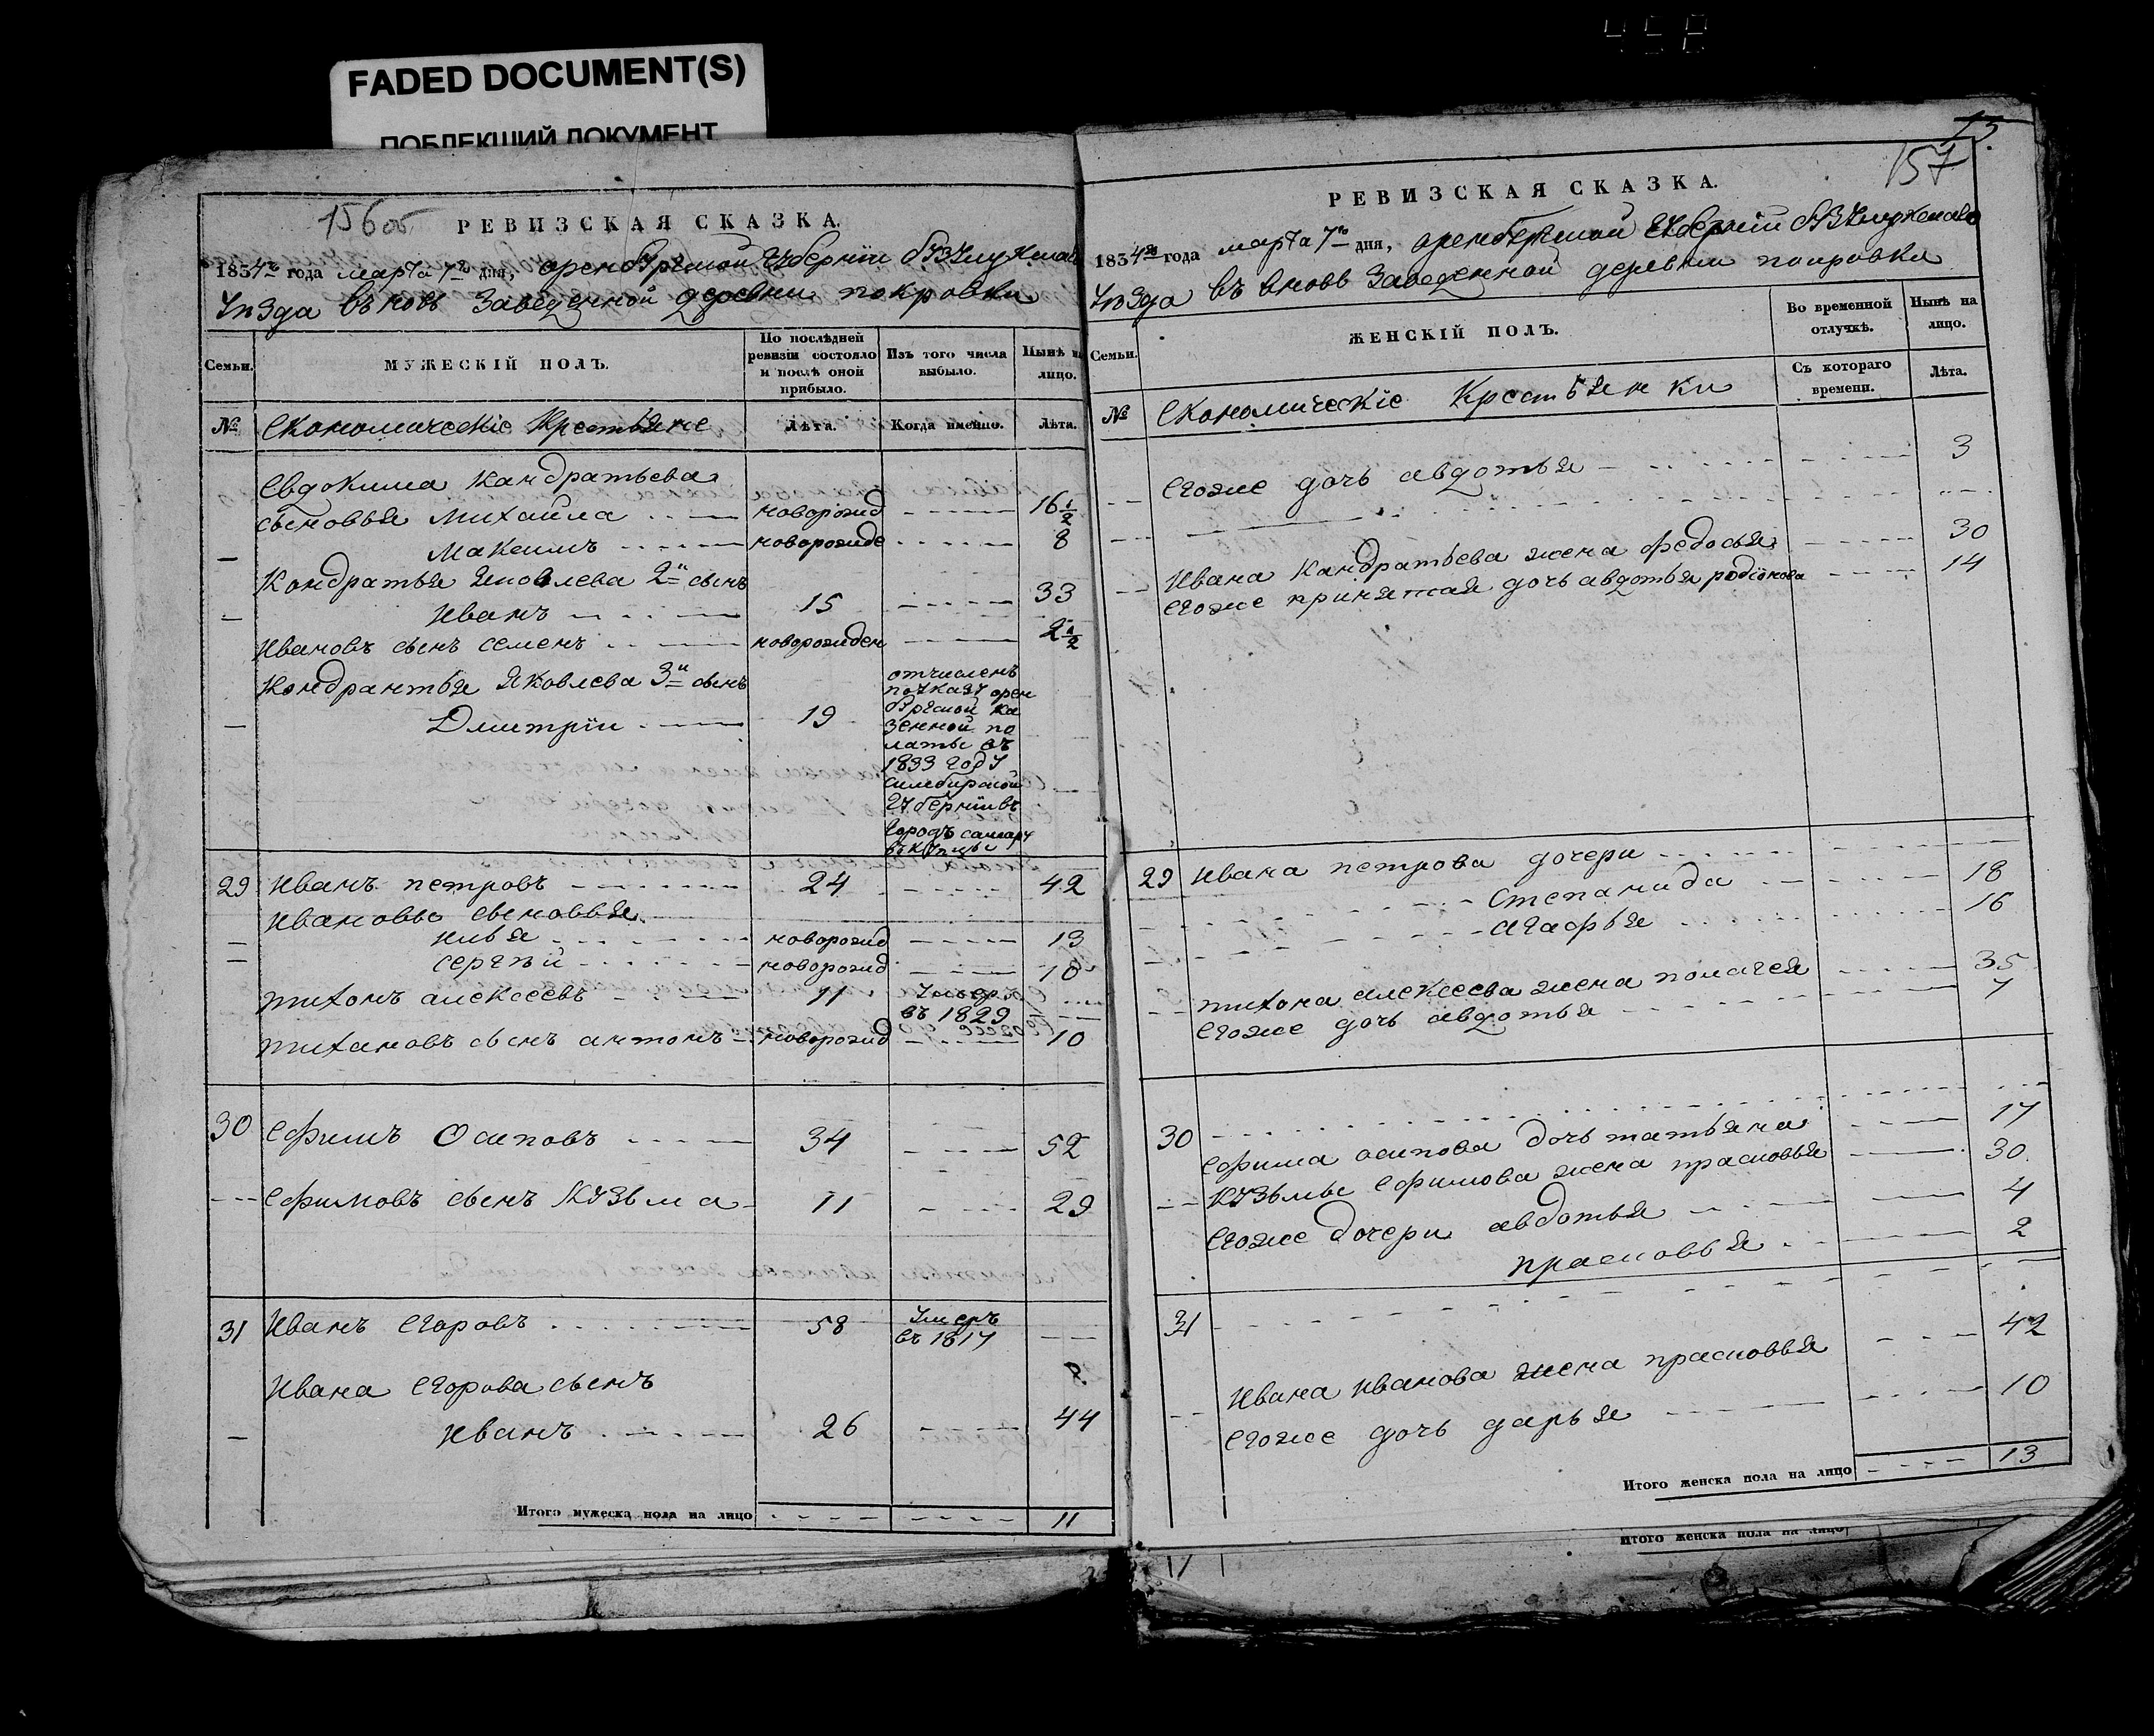 458
FADED DOCUMENT(S)
ПОБЛЕКШИЙ ДОКУМЕНТ
156 об
РЕВИЗСКАЯ СКАЗКА.
1834го года марта 7го дня, оренбургской губернии бузулукскаго
уезда въ новь заведенной деревни покровки
Семьи.
МУЖЕСКІЙ ПОЛЪ.
По послѣдней ревизіи состояло и послѣ оной прибыло.
Изъ того числа выбыло.
Нынѣ на лицо.
№
Економическіе Крестьяне
Лѣта.
Когда именно.
Лѣта.
Евдокима Кандратьева
сыновья Михайла новорожд 16 1/2
Максимъ новорожде 8
Кондратья Яковлева 2й сынъ
Иванъ 15 33
Ивановъ сынъ семенъ новорожден 2 1/2
Кондрантья Яковлева 3й сынъ
Дмитріи 19
отчисленъ
по указу орен
бургской ка
зенной па
латы въ
1833 году
симбирской
губерніи въ
городъ самару
въ купцы
29 Иванъ петровъ 24 42
Ивановы сыновья
Илья новорожд 13
сергѣй новорожд 10
тихонъ алексеевъ 11 умеръ
въ 1829
тихановъ сынъ антонъ новорожд 10
30 Ефимъ Осиповъ 34 52
Ефимовъ сынъ Кузьма 11 29
31 Иванъ Егоровъ 58 умеръ
въ 1817
Ивана Егорова сынъ
Иванъ 26 44
Итого мужеска пола на лицо 11
13.
157
РЕВИЗСКАЯ СКАЗКА.
1834го года марта 7го дня, оренбургской губерніи бузулукскаго
уезда въ вновь заведенной деревни покровки
Семьи.
ЖЕНСКІЙ ПОЛЪ.
Во временной отлучкѣ.
Нынѣ на лицо.
Съ котораго времени.
Лѣта.
№
Економическіе Крестьянки
Егоже дочь авдотья 3
Ивана Кандратьева жена федосья 30
Егоже принятая дочь авдотья родіонова 14
29 Ивана петрова дочери
Степанида 18
агафья 16
тихона алексеева жена полагея 35
Егоже дочь авдотья 7
30
Ефима осипова дочь татьяна 17
Кузьмы Ефимова жена прасковья 30
Егоже дочери авдотья 4
прасковья 2
31
Ивана Иванова жена прасковья 42
Егоже дочь дарья 10
Итого женска пола на лицо 13
Итого женска пола на лицо